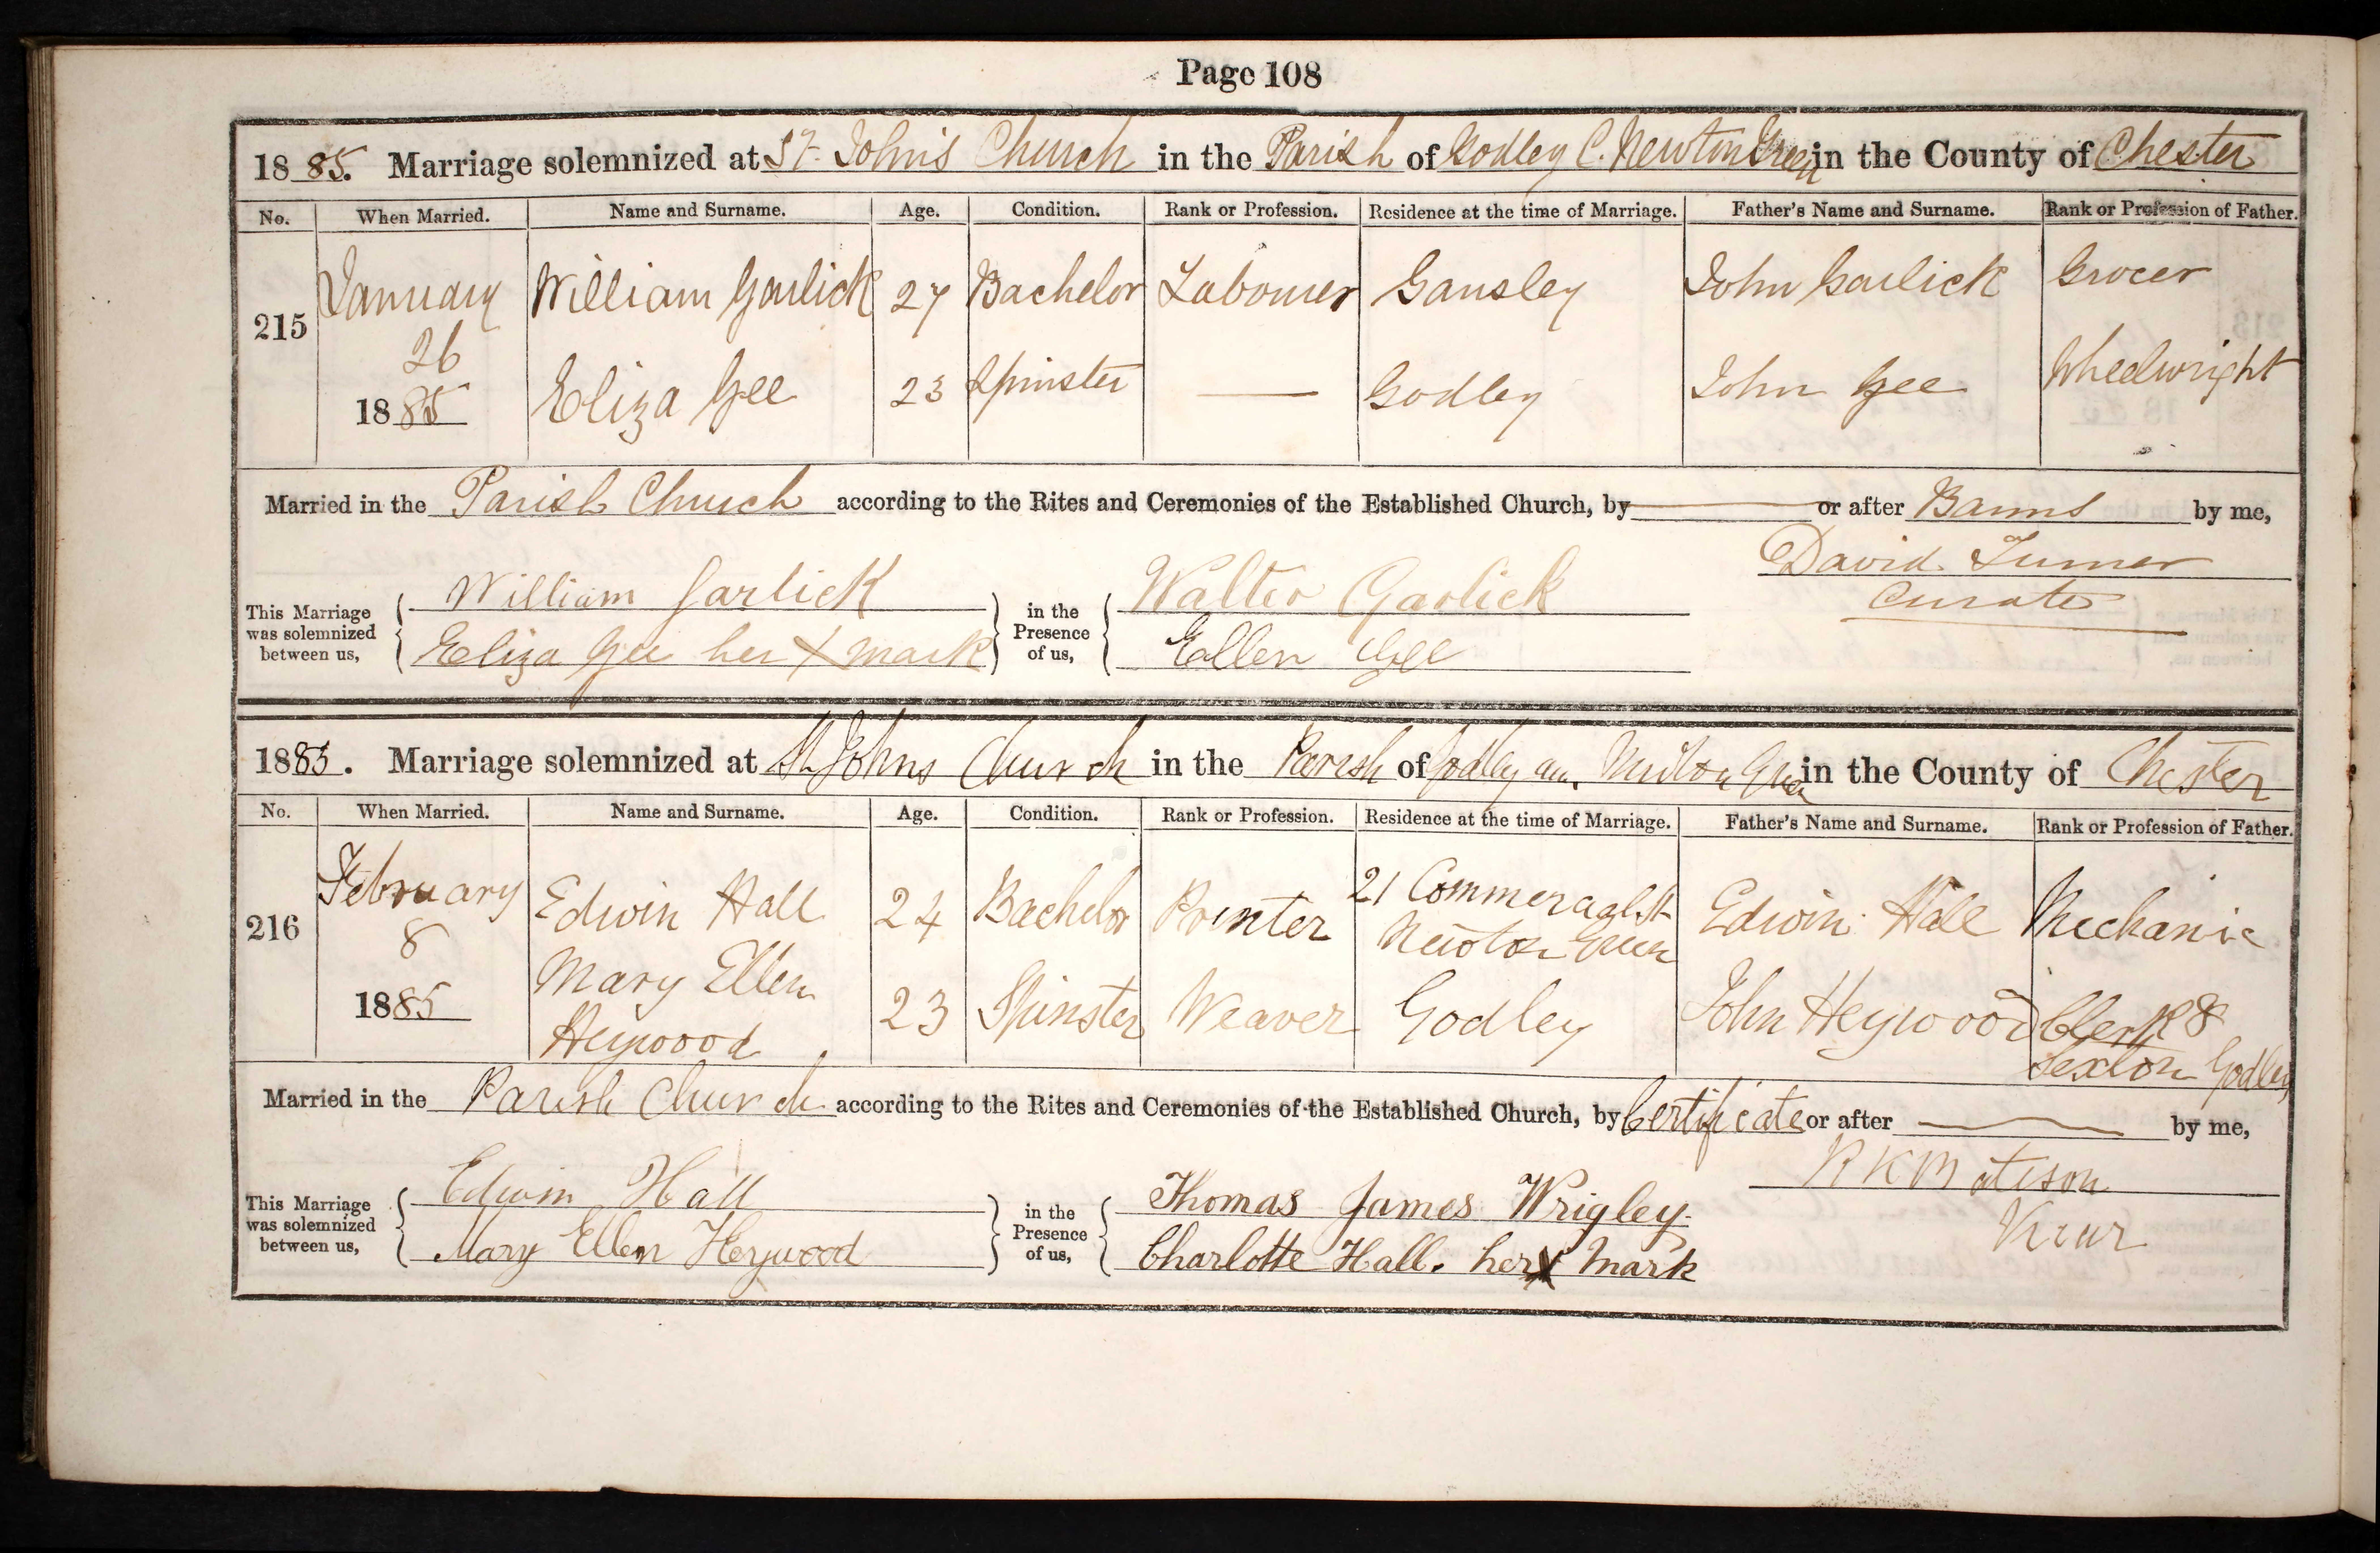 Page 108
1885. Marriage solemnized at St. John's Church in the Parish of Godley C. Newton Green in the County of Chester
No. When Married. Name and Surname. Age. Condition. Rank or Profession. Residence at the time of Marriage. Father's Name and Surname. Rank or Profession of Father.
215 January 26 1885 William Garlick 27 Bachelor Labourer Gansley John Garlick Grocer
Eliza Gee 23 Spinster — Godley John Gee Wheelwright
Married in the Parish Church according to the Rites and Ceremonies of the Established Church, by — or after Banns by me,
David Turner
Curate
This Marriage was solemnized between us, William Garlick in the Presence of us, Walter Garlick
Eliza Gee her X mark Ellen Gee
1885. Marriage solemnized at St Johns Church in the Parish of Godley cum Newton Green in the County of Chester
No. When Married. Name and Surname. Age. Condition. Rank or Profession. Residence at the time of Marriage. Father's Name and Surname. Rank or Profession of Father.
216 February 8 1885 Edwin Hall 24 Bachelor Printer 21 Commeraal St Newton Green Edwin Hall Mechanic
Mary Ellen Heywood 23 Spinster Weaver Godley John Heywood Clerk & Sexton Godley
Married in the Parish Church according to the Rites and Ceremonies of the Established Church, by Certificate or after — by me,
This Marriage was solemnized between us, Edwin Hall in the Presence of us, Thomas James Wrigley.
Mary Ellen Heywood Charlotte Hall. her X Mark
Vicar